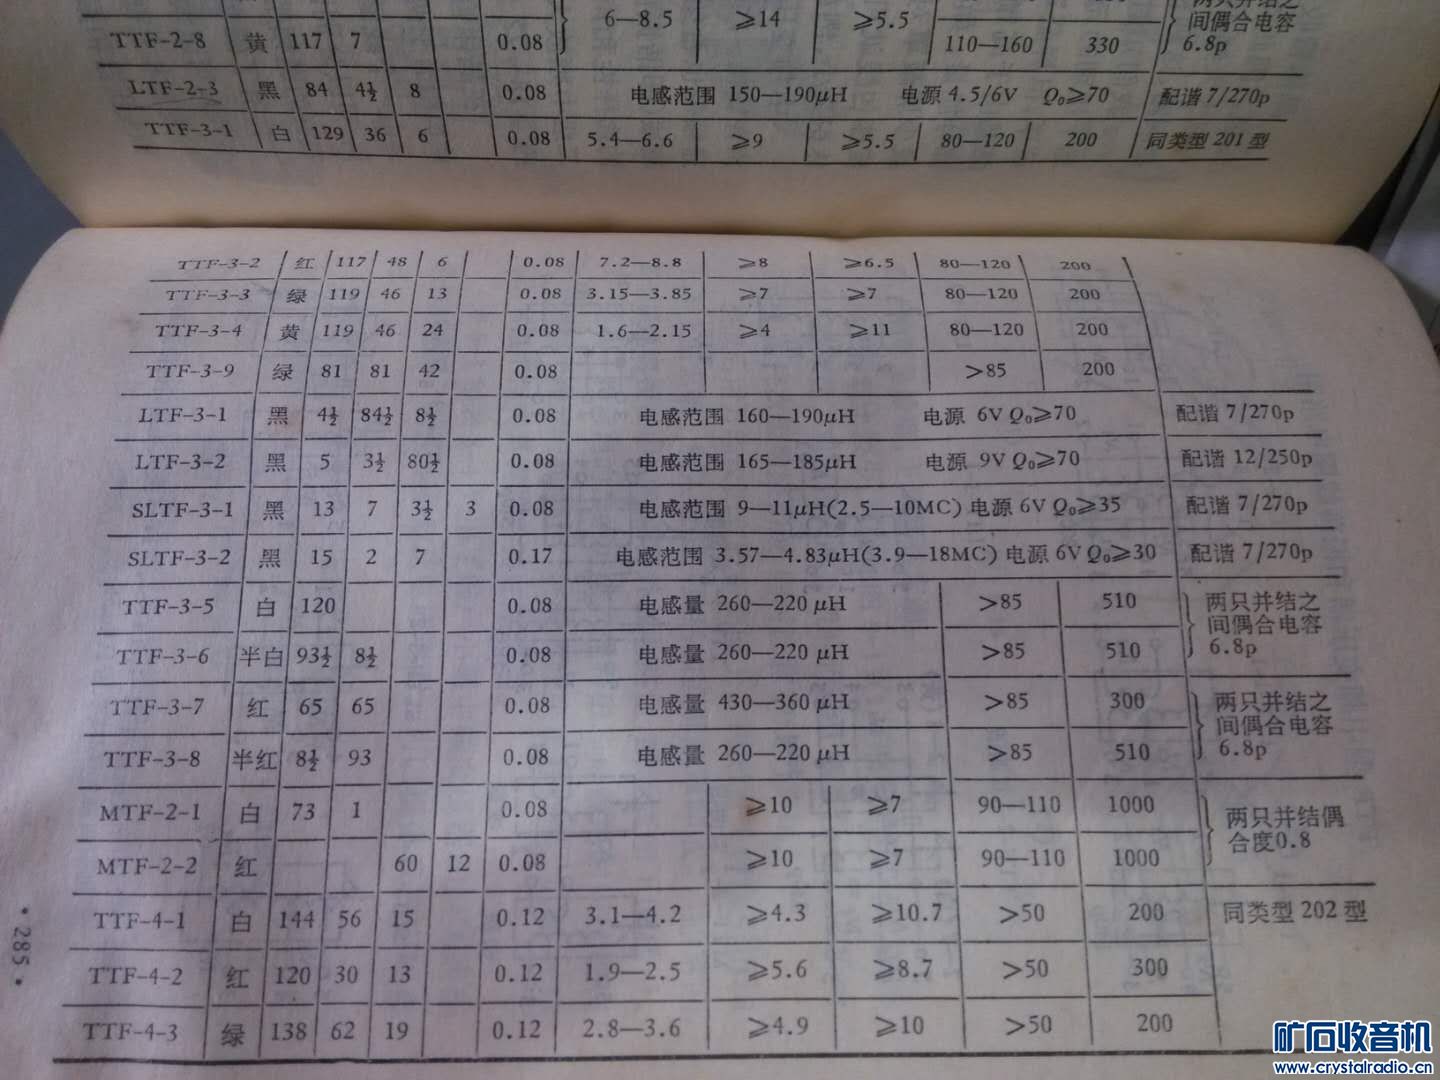 6—8.5 ≥14 ≥5.5 间偶合电容
TTF-2-8 黄 117 7 0.08 110—160 330 6.8p
LTF-2-3 黑 84 4½ 8 0.08 电感范围 150—190μH 电源 4.5/6V Q₀≥70 配谐 7/270p
TTF-3-1 白 129 36 6 0.08 5.4—6.6 ≥9 ≥5.5 80—120 200 同类型 201 型
TTF-3-2 红 117 48 6 0.08 7.2—8.8 ≥8 ≥6.5 80—120 200
TTF-3-3 绿 119 46 13 0.08 3.15—3.85 ≥7 ≥7 80—120 200
TTF-3-4 黄 119 46 24 0.08 1.6—2.15 ≥4 ≥11 80—120 200
TTF-3-9 绿 81 81 42 0.08 >85 200
LTF-3-1 黑 4½ 84½ 8½ 0.08 电感范围 160—190μH 电源 6V Q₀≥70 配谐 7/270p
LTF-3-2 黑 5 3½ 80½ 0.08 电感范围 165—185μH 电源 9V Q₀≥70 配谐 12/250p
SLTF-3-1 黑 13 7 3½ 3 0.08 电感范围 9—11μH(2.5—10MC) 电源 6V Q₀≥35 配谐 7/270p
SLTF-3-2 黑 15 2 7 0.17 电感范围 3.57—4.83μH(3.9—18MC) 电源 6V Q₀≥30 配谐 7/270p
TTF-3-5 白 120 0.08 电感量 260—220 μH >85 510 两只并结之
间偶合电容
TTF-3-6 半白 93½ 8½ 0.08 电感量 260—220 μH >85 510 6.8p
TTF-3-7 红 65 65 0.08 电感量 430—360 μH >85 300 两只并结之
间偶合电容
TTF-3-8 半红 8½ 93 0.08 电感量 260—220 μH >85 510 6.8p
MTF-2-1 白 73 1 0.08 ≥10 ≥7 90—110 1000 两只并结偶
合度0.8
MTF-2-2 红 60 12 0.08 ≥10 ≥7 90—110 1000
TTF-4-1 白 144 56 15 0.12 3.1—4.2 ≥4.3 ≥10.7 >50 200 同类型 202 型
TTF-4-2 红 120 30 13 0.12 1.9—2.5 ≥5.6 ≥8.7 >50 300
TTF-4-3 绿 138 62 19 0.12 2.8—3.6 ≥4.9 ≥10 >50 200
• 285 •
矿石收音机
www.crystalradio.cn